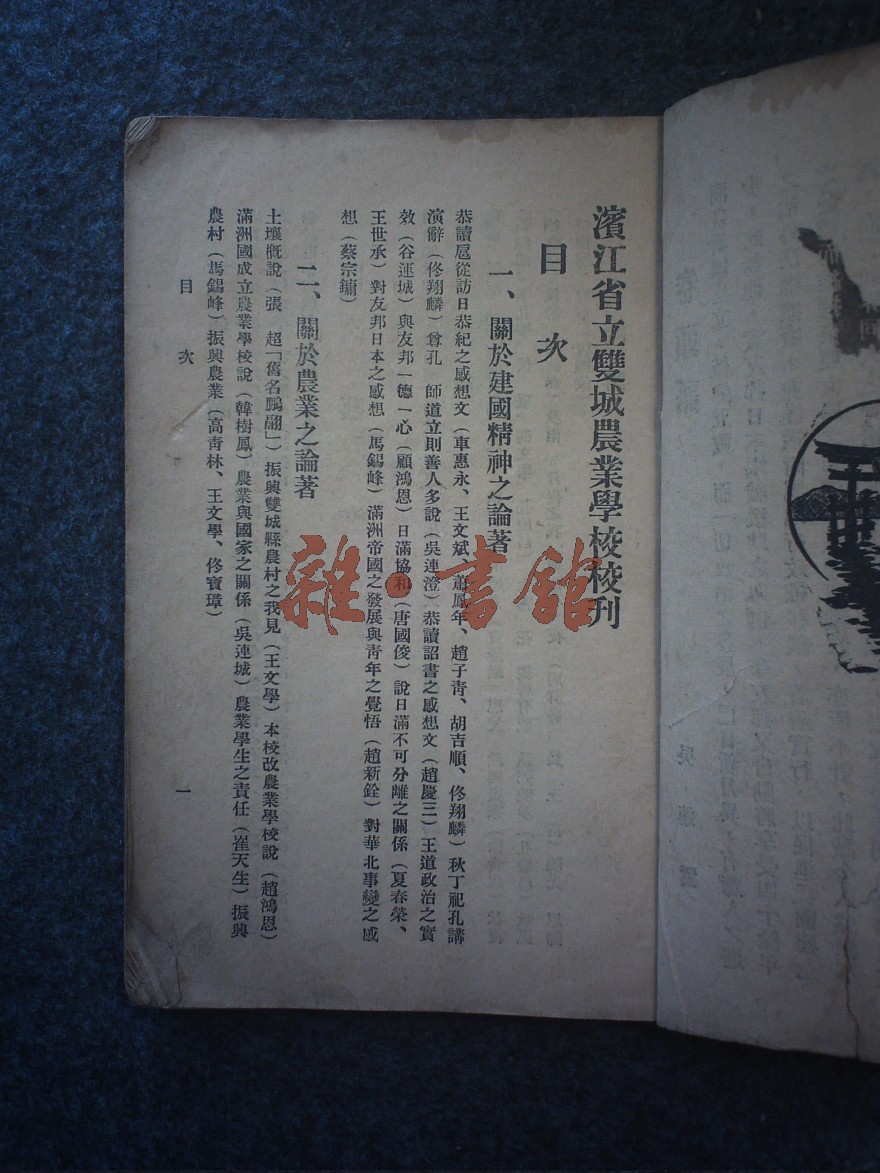 濱江省立雙城農業學校校刊
目次
一、關於建國精神之論著
恭讀扈從訪日恭紀之感想文(車惠永、王文斌、蕭鳳年、趙子靑、胡吉順、佟翔麟)秋丁祀孔講
演辭(佟翔麟)尊孔 師道立則善人多說(吳連澄)恭讀詔書之感想文(趙慶三)王道政治之實
效(谷運城)與友邦一德一心(顧鴻恩)日滿協和(唐國俊)說日滿不可分離之關係(夏春榮、
王世承)對友邦日本之感想(馬錫峰)滿洲帝國之發展與靑年之覺悟(趙新銓)對華北事變之感
想(蔡宗鏞)
二、關於農業之論著
土壤槪說(張 超「舊名鵬翮」)振興雙城縣農村之我見(王文學)本校改農業學校說(趙鴻恩)
滿洲國成立農業學校說(韓樹鳳)農業與國家之關係(吳連城)農業學生之責任(崔天生)振興
農村(馬錫峰)振興農業(高靑林、王文學、佟寶璋)
目次 一
雜·書館